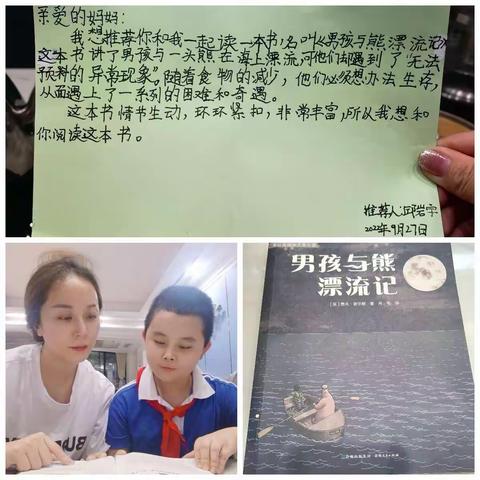 亲爱的妈妈：
我想推荐你和我一起读一本书，名叫《男孩与熊漂流记》
这本书讲了男孩与一头熊在海上漂流，可他们却遇到了"无法
预料的异常现象"。随着食物的减少，他们必须想办法生存，
从而遇上了一系列的困难和奇遇。
这本书情书生动，环环紧扣，非常丰富，所从我想和
你阅读这本书。
推荐人：邱岩宇
2022年9月27日
男孩与熊
漂流记